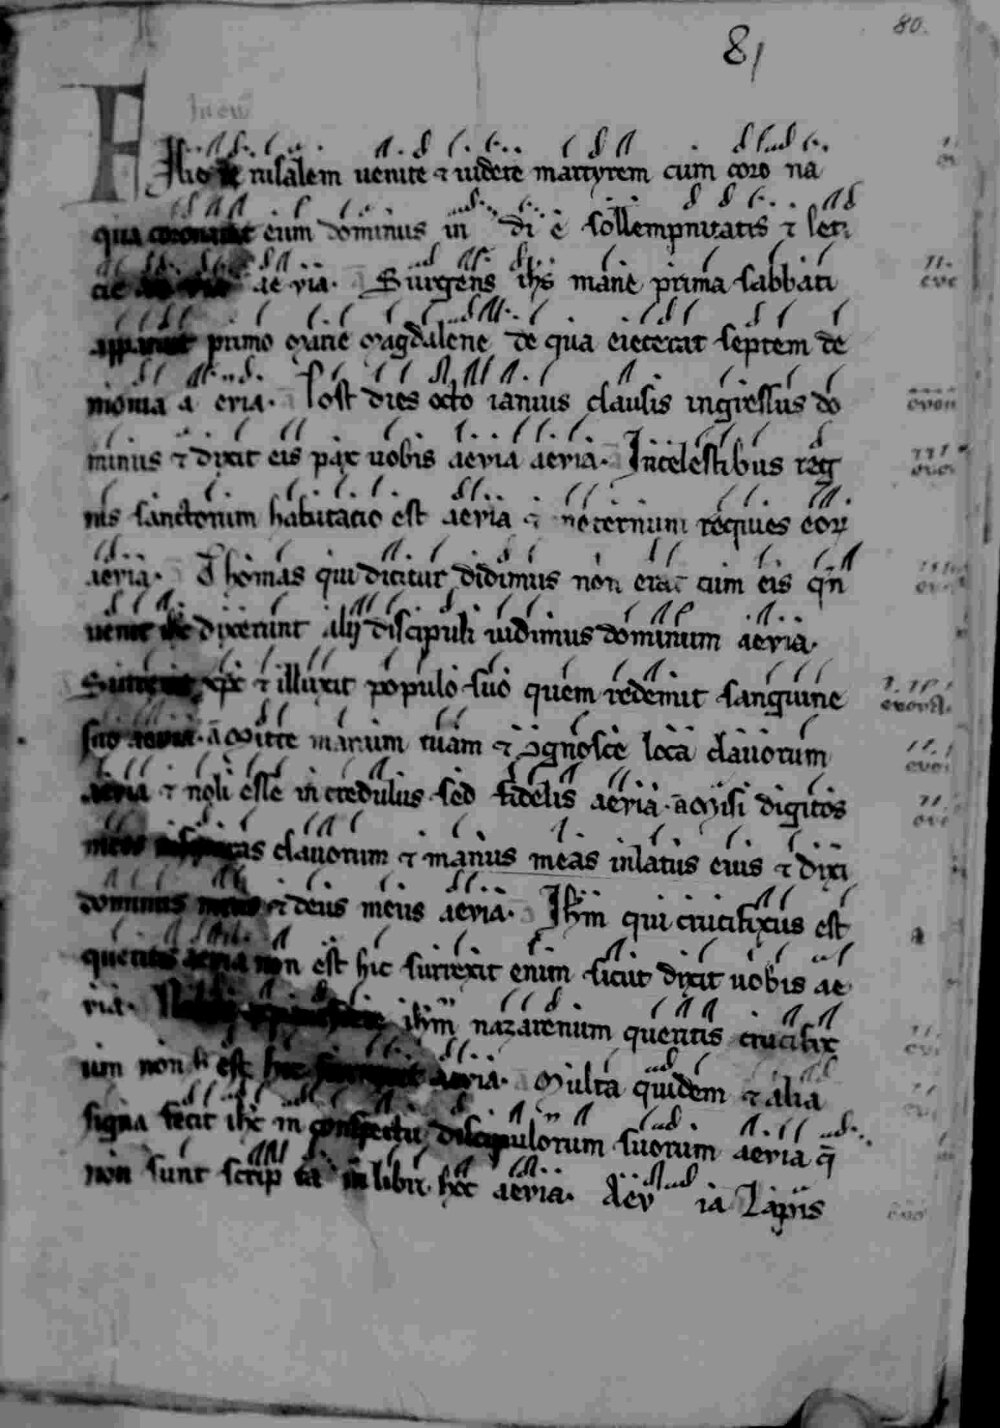 80.
81
In eu
Filie ierusalem uenite ⁊ uidete martyrem cum coro na
qua coronauit eum dominus in di ē sollempnitatis ⁊ leti
cie ae via. Surgens ihs mane prima sabbati
apparuit primo marie magdalene de qua eiecerat septem de
monia a evia. Post dies octo ianuis clausis ingressus do
minus ⁊ dixit eis pax uobis aevia aevia. In celestibus reg
nis sanctorum habitatio est aevia ⁊ in eternum requies eoꝝ
aevia. Thomas qui dicitur didimus non erat cum eis qn̄
uenit ihc dixerunt alij discipuli uidimus dominum aevia.
Surrexit xpc ⁊ illuxit populo suo quem redemit sanguine
suo aevia. a Mitte manum tuam ⁊ cognosce loca clauorum
aevia ⁊ noli esse incredulus sed fidelis aevia. a Misi digitos
meos in fixuras clauorum ⁊ manus meas in latus eius ⁊ dixi
dominus meus ⁊ deus meus aevia. Ihm qui crucifixus est
queritis aevia non est hic surrexit enim sicut dixit uobis ae
via. Nolite expauescere ihm nazarenum queritis crucifix
um non est hic surrexit aevia. Multa quidem ⁊ alia
signa fecit ihc in conspectu discipulorum suorum aevia q̄
non sunt scrip ta in libro hoc aevia. Aev ia Lapis